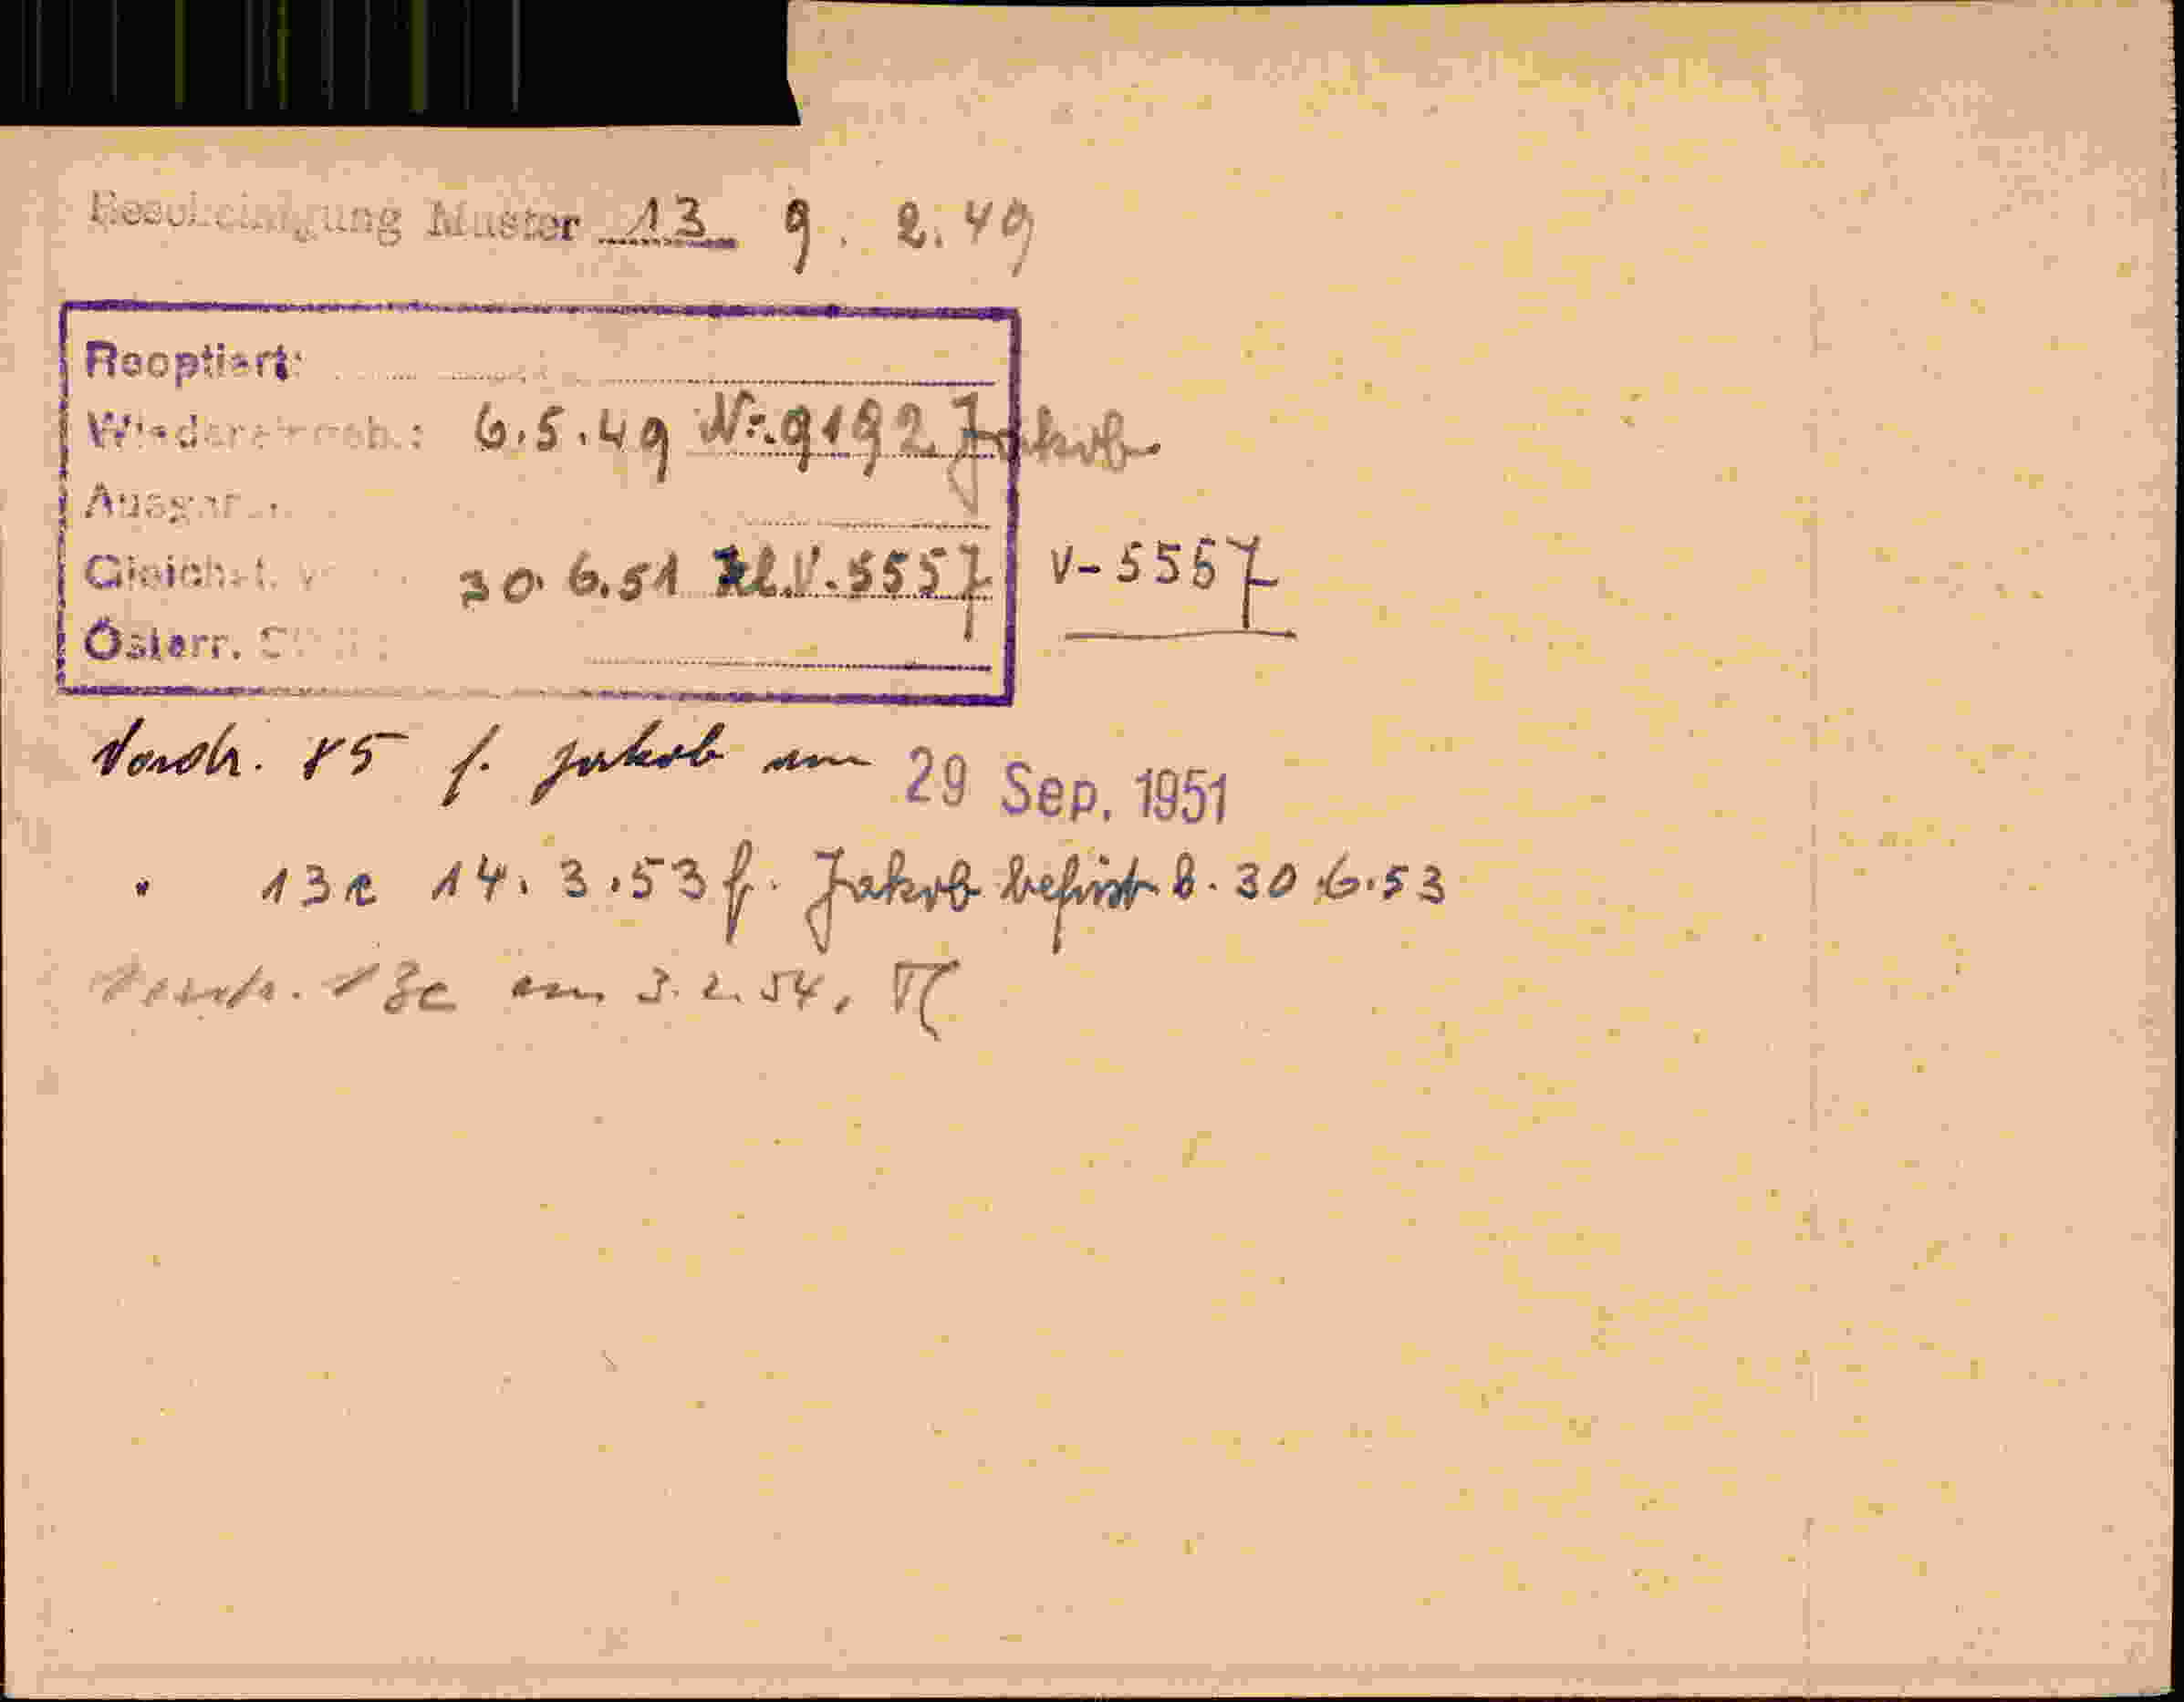 Bescheinigung Muster 13 9. 2. 49
Reoptiert:
6.5.49 Nr. 9192 Jakob
30. 6. 51 Zl. V. 5557 V-5557
Österr.
Vordr. 85 f. Jakob am 29 Sep. 1951
" 13c 14. 3. 53 f. Jakob befrist. b. 30.6.53
Vordr. 13c am 3. 2. 54.